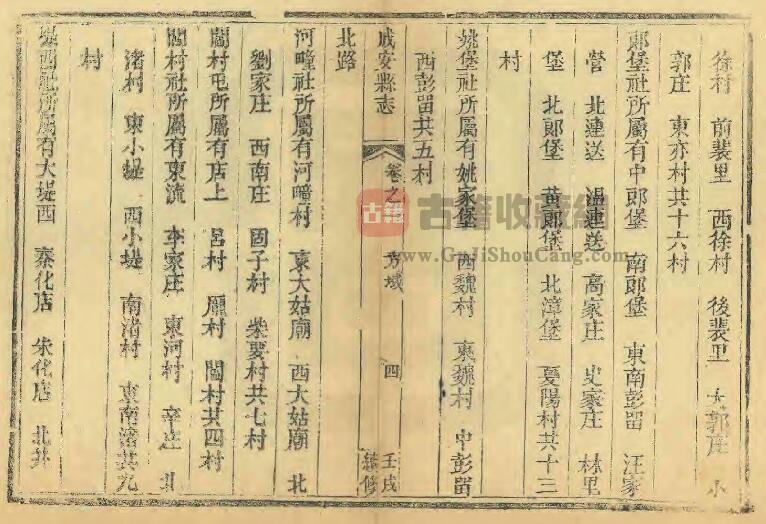 徐村　前裴里　西徐村　後裴里　大郭庄　小
郭庄　東亦村共十六村
郎堡社所屬有中郎堡　南郎堡　東南彭留　汪家
營　北連送　温連送　高家庄　史家庄　林里
堡　北郎堡　黄郎堡　北漳堡　夏陽村共十三
村
姚堡社所屬有姚家堡　西魏村　東魏村　中彭留
西彭留共五村
成安縣志　卷之　方域　四　壬戌續修
北路
河疃社所屬有河疃村　東大姑廟　西大姑廟　北
劉家庄　西南庄　固子村　柴要村共七村
閻村屯所屬有店上　呂村　龐村　閻村共四村
閻村社所屬有東流　李家庄　東河村　辛庄　北
渚村　東小堤　西小堤　南渚村　東南渚共九
村
堤西社所屬有大堤西　寨化店　朱化店　北井
古籍
古籍收藏網
www.GuJiShouCang.com